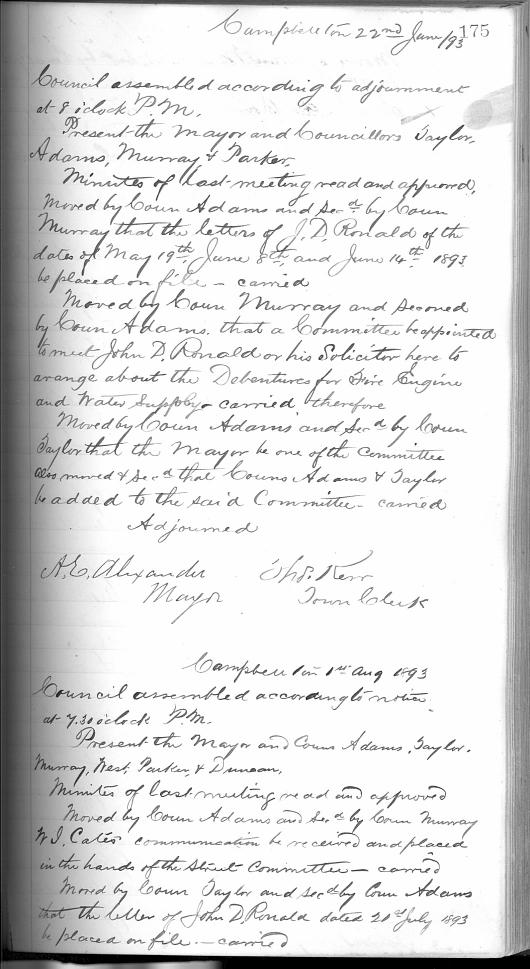 175
Campbellton 22nd June/93
Council assembled according to adjournment
at 8 oclock P.M.
Present the Mayor and Councillors Taylor,
Adams, Murray & Parker,
Minutes of last meeting read and approved,
Moved by Coun Adams and Secd by Coun
Murray that the letters of J. D. Ronald of the
dates of May 19th, June 8th, and June 14th 1893
be placed on file - carried
Moved by Coun Murray and Seconed
by Coun Adams. that a Committee be appointed
to meet John D. Ronald or his Solicitor here to
arange about the Debentures for Fire Engine
and Water Supply - carried therefore
Moved by Coun Adams and Secd by Coun
Taylor that the Mayor be one of the Committee
also moved & Secd that Couns Adams & Taylor
be added to the said Committee - carried
Adjourned
A. E. Alexander Thos. Kerr
Mayor Town Clerk
Campbellton 1st Aug 1893
Council assembled according to notice
at 7.30 oclock P.M.
Present the Mayor and Couns Adams, Taylor.
Murray, West, Parker, & Duncan,
Minutes of last meeting read and approved
Moved by Coun Adams and Secd by Coun Murray
W J. Cates communication be received and placed
in the hands of the Street Committee - carried
Moved by Coun Taylor and Secd by Coun Adams
that the letter of John D. Ronald dated 21st July 1893
be placed on file. - carried